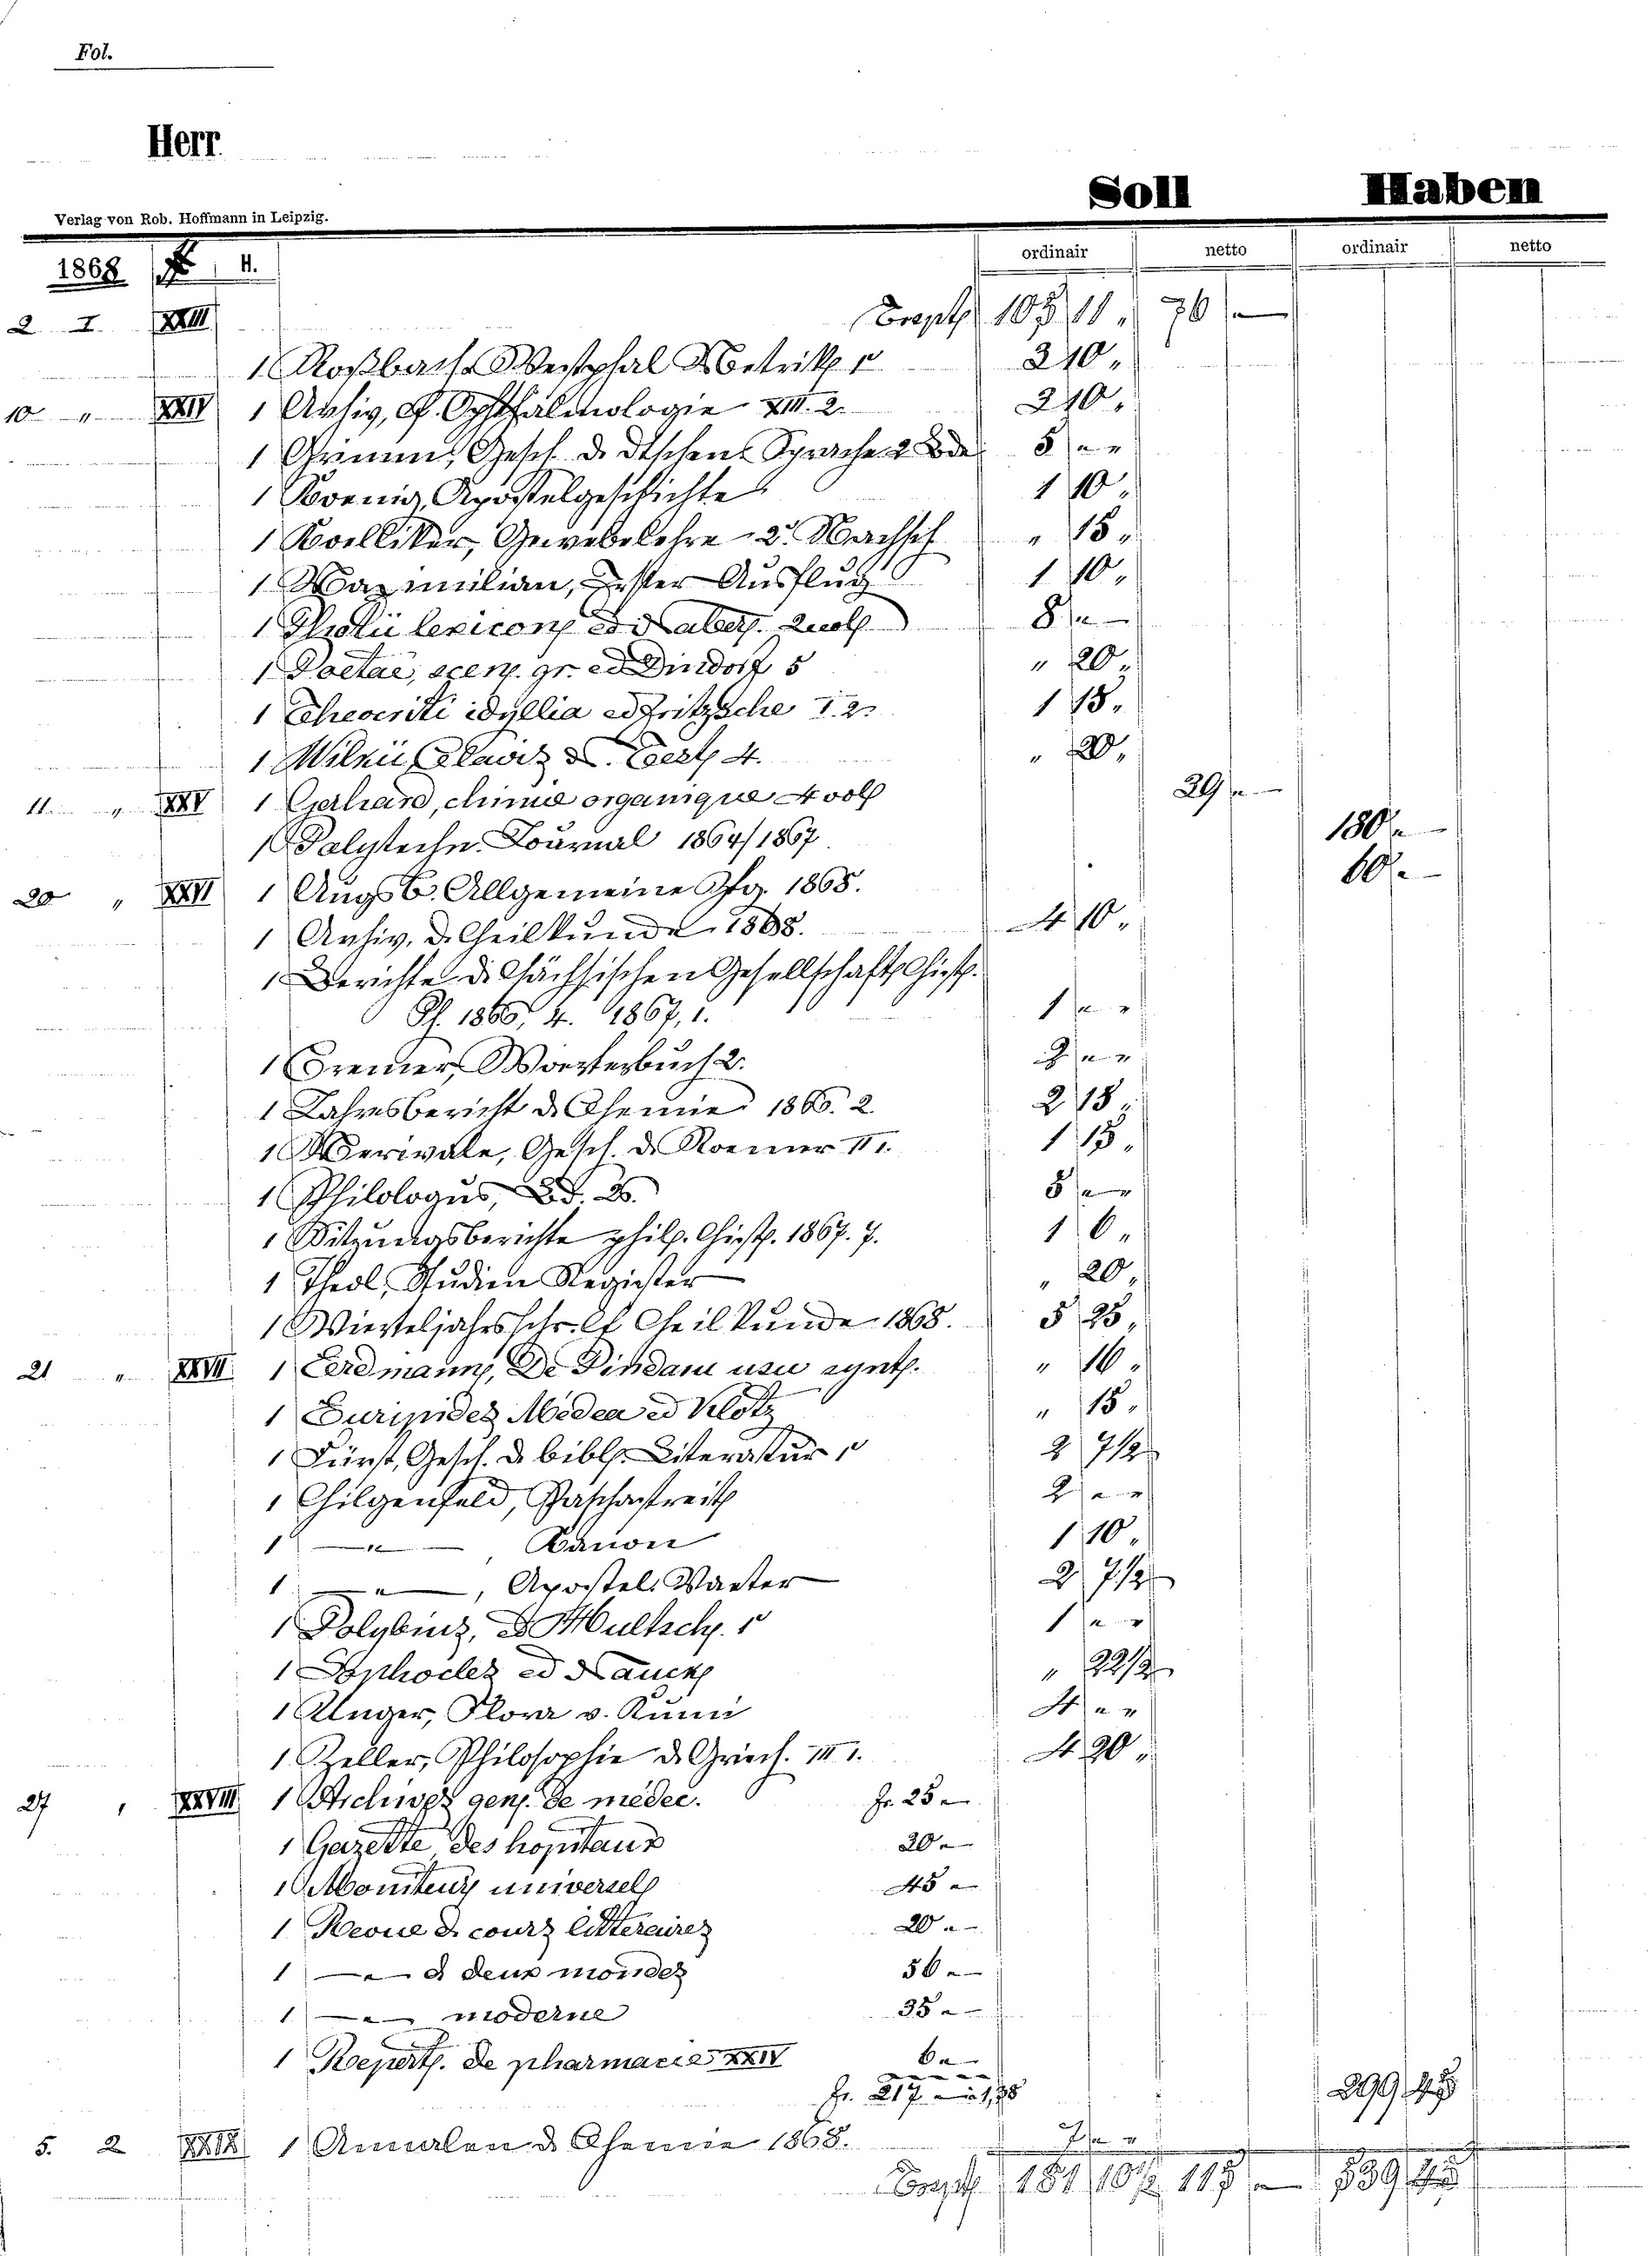 Fol.
Herr
Soll Haben
Verlag von Rob. Hoffmann in Leipzig.
ordinair netto ordinair netto
1868 H.
2 I. XXIII Transp. 105 11 " 76 "
1 Roßbach & Westphal Metrik 1 2 10 "
10 " XXIV 1 Archiv, f. Ophthalmologie XIII. 2. 2 10 "
1 Grimm, Gesch. d. dtschen Sprache 2 Bde 5 " "
1 Koenig, Apostelgeschichte 1 10 "
1 Koelliker, Gewebelehre 2. " 15 "
1 Maximilian, Erster Ausflug 1 10 "
1 Photii lexicon ed Naber. 2 voll 8 "
1 Poetae, scen. gr. ed Dindorf 5 " 20 "
1 Theocriti idyllia ed Fritzsche I. 2. 1 15 "
1 Wilkii Clavis N. Test. 4. " 20 "
11. " XXV 1 Gerhard, chimie organique 4 voll 29 "
1 Polytechn. Journal 1864/1867. 180 "
20 " XXVI 1 Augsb. Allgemeine Ztg. 1868. 60 "
1 Archiv, d. Heilkunde 1868. 4 10 "
1 Berichte d. Sächsischen Gesellschaft hist.
1866, 4. 1867, 1. 1 " "
1 Cremer, Woerterbuch 2. " "
1 Jahresbericht d. Chemie 1866. 2 2 15 "
1 Merivale, Gesch. d. Roemer II 1. 1 15 "
1 Philologus, Bd. 5 " "
1 Sitzungsberichte phil. hist. 1867. 7. 1 6 "
1 Theol. Studien Register " 20 "
1 Vierteljahrsschr. f. Heilkunde 1868. 5 25 "
21 " XXVII 1 Erdmann, De Pindari usu synt. " 16 "
1 Euripides Medea ed Klotz " 15 "
1 Fürst, Gesch. d. bibl. Literatur 1 2 7 1/2
1 Hilgenfeld, Paschastreit 2 " "
1 — " — , Kanon 1 10 "
1 — " — , Apostel. Vaeter 2 7 1/2
1 Polybius, ed Hultsch. 1 1 " "
1 Sophocles ed Nauck " 22 1/2
1 Unger, Flora v. Kumi 4 " "
1 Zeller, Philosophie d. Griech. III 1. 4 20 "
27 " XXVIII 1 Archives gen. de médec. fr. 25 "
1 Gazette des hopitaux 20 "
1 Moniteur universel 45 "
1 Revue d. cours litteraires 20 "
1 — " d. deux mondes 56 "
1 — " moderne 35 "
1 Repert. de pharmacie XXIV 6 "
fr. 217 299 45
5. 2 XXIX 1 Annalen d. Chemie 1868. 7 " "
Transp. 181 10 1/2 115 — 539 45